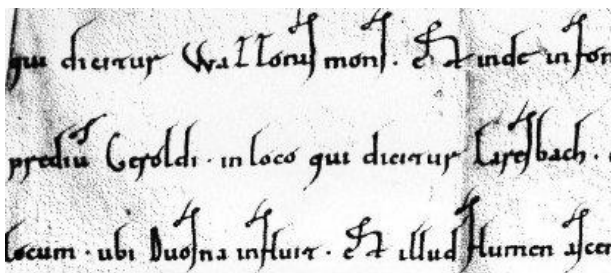 qui dicitur Wallonis mons. Et inde in fon
prediū Geroldi. in loco qui dicitur Laresbach.
locum. ubi Duosna influit. Et illud flumen ascen